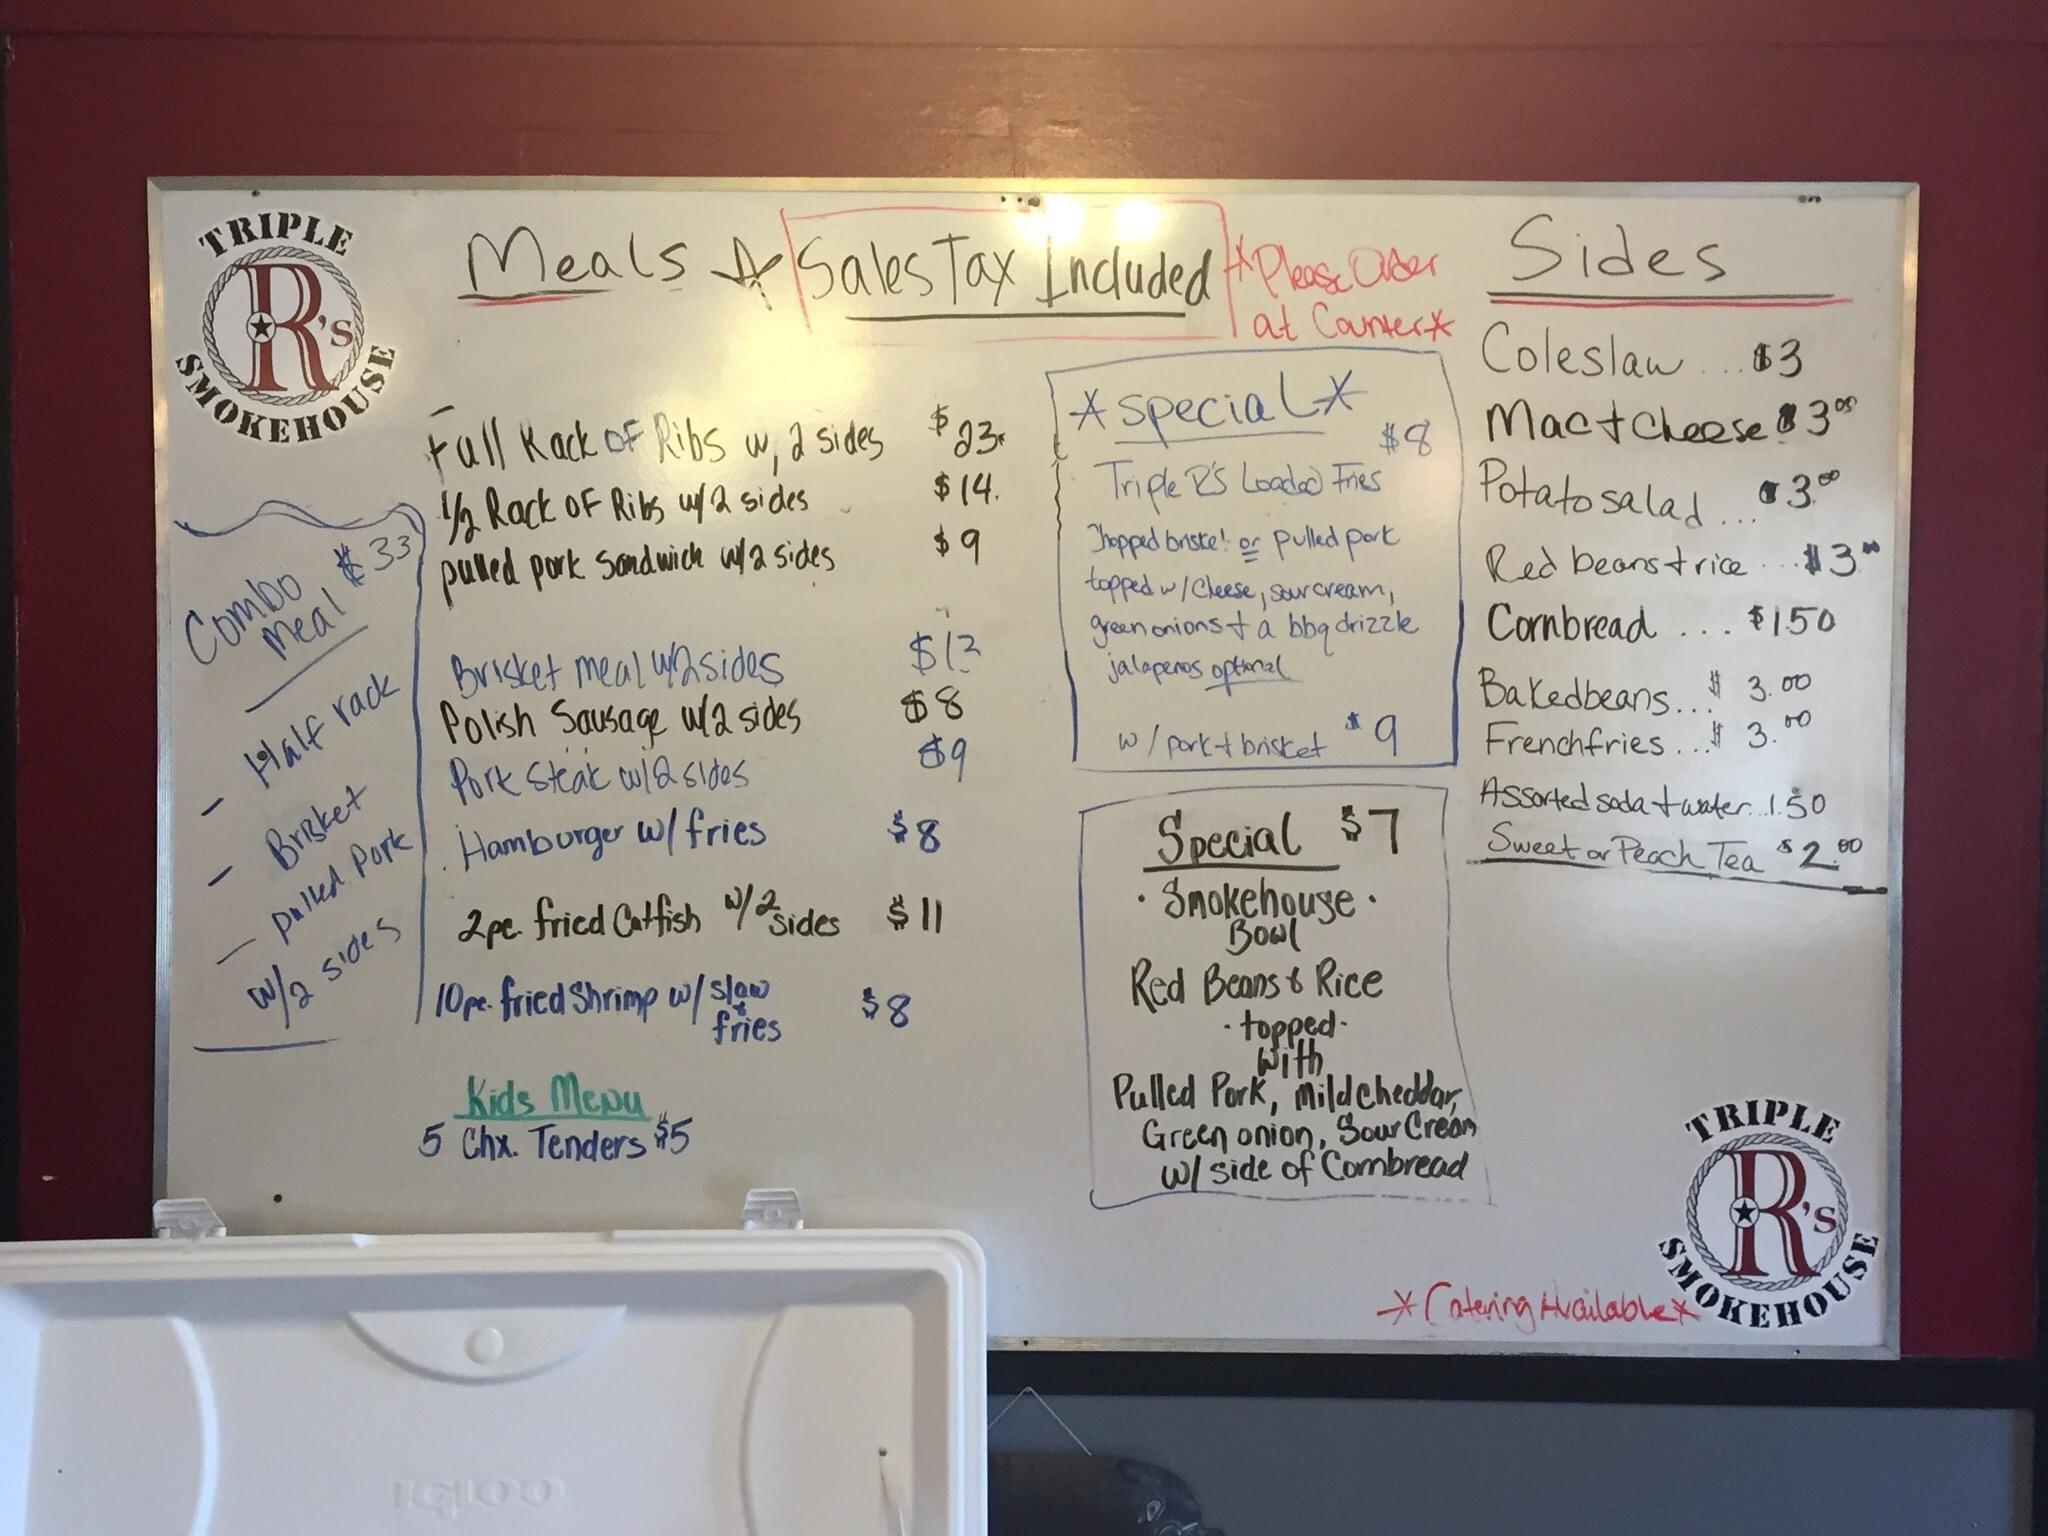 TRIPLE
R's
SMOKEHOUSE
Meals ☆ Sales Tax Included
*Please Order
at Counter*
Combo $33
Meal
- Half rack
- Brisket
- Pulled Pork
w/2 sides
Full Rack of Ribs w, 2 sides $23.
1/2 Rack of Ribs w/2 sides $14.
pulled pork Sandwich w/2 sides $9
Brisket meal w/2 sides
Polish Sausage w/2 sides $8
Pork Steak w/2 sides $9
Hamburger w/ fries $8
2pc. fried Catfish w/2 sides $11
10pc. fried Shrimp w/ slaw & fries $8
Kids Menu
5 Chx. Tenders $5
*Special*
$8
Triple R's Loaded Fries
Chopped brisket or pulled pork
topped w/ Cheese, sour cream,
green onions + a bbq drizzle
jalapenos optional
w/ pork + brisket $9
Special $7
· Smokehouse ·
Bowl
Red Beans & Rice
· topped ·
with
Pulled Pork, Mild Cheddar,
Green onion, Sour Cream
w/ side of Cornbread
Sides
Coleslaw ... $3
Mac + Cheese $3.00
Potato salad ... $3.00
Red beans + rice ... $3.00
Cornbread ... $1.50
Baked beans... $ 3.00
French fries ... $ 3.00
Assorted soda + water...1.50
Sweet or Peach Tea $2.00
*Catering Available*
TRIPLE
R's
SMOKEHOUSE
igloo